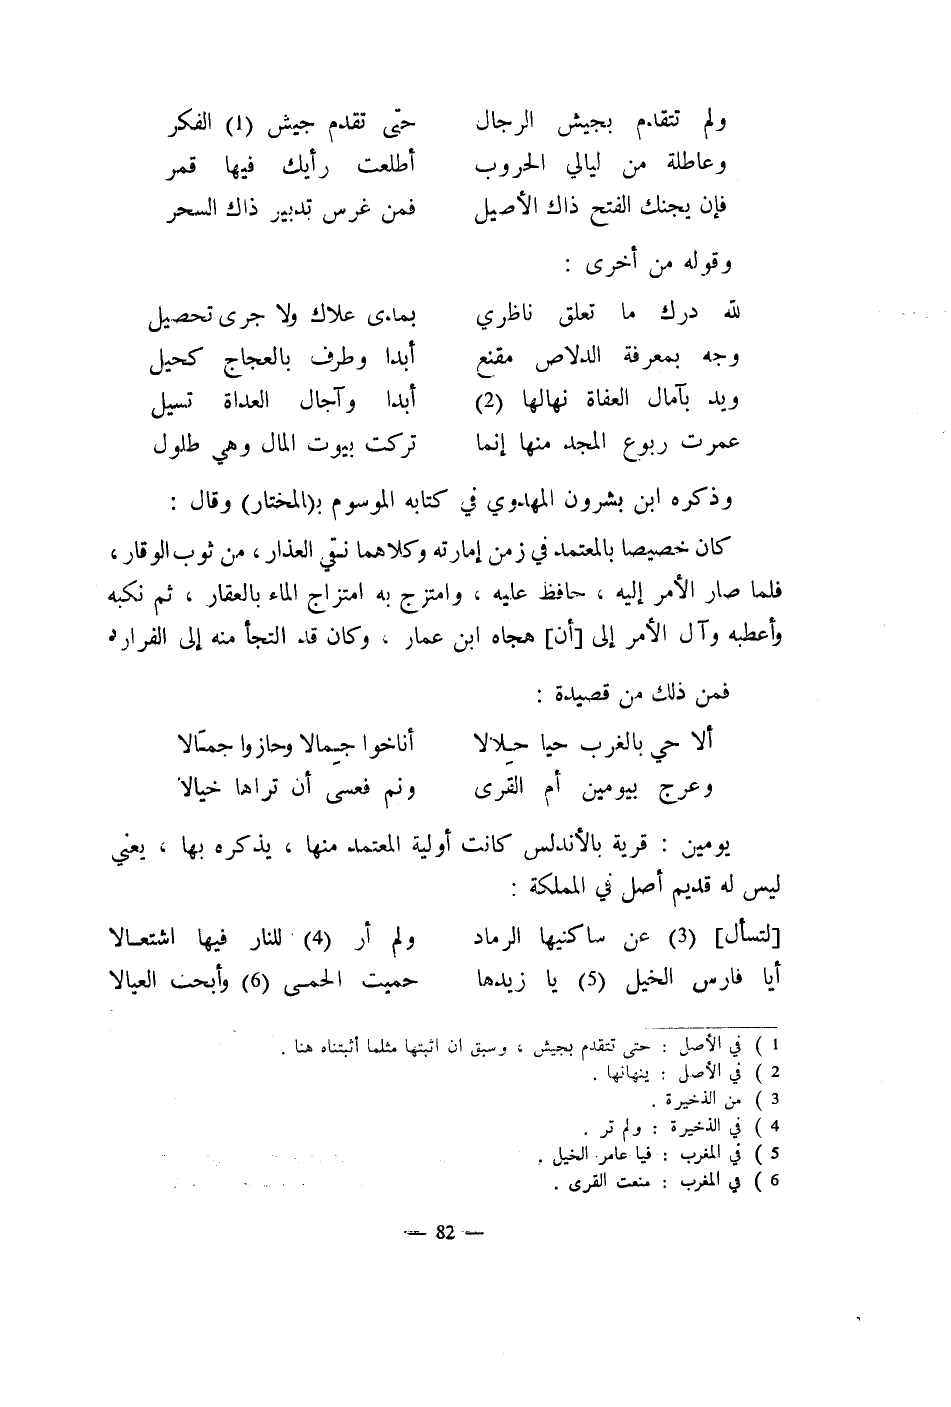 ولم تتقدم بجيش الرجال حتّى تقدم جيش (1) الفكر
وعاطلة من ليالي الحروب أطلعت رأيك فيها قمر
فإن يجنك الفتح ذاك الأصيل فمن غرس تدبير ذاك السحر
وقوله من أخرى :
لله درك ما تعلق ناظري بمدى علاك ولا جرى تحصيل
وجه بمعرفة الدلاص مقنع أبدا وطرف بالعجاج كحيل
ويد بآمال العفاة نهالها (2) أبدا وآجال العداة تسيل
عمرت ربوع المجد منها إنما تركت بيوت المال وهي طلول
وذكره ابن بشرون المهدوي في كتابه الموسوم بـ(المختار) وقال :
كان خصيصا بالمعتمد في زمن إمارته وكلاهما نقي العذار ، من ثوب الوقار ،
فلما صار الأمر إليه ، حافظ عليه ، وامتزج به امتزاج الماء بالعقار ، ثم نكبه
وأعطبه وآل الأمر إلى [أن] هجاه ابن عمار ، وكان قد التجأ منه إلى الفرار ،
فمن ذلك من قصيدة :
ألا حي بالغرب حيا حلالا أناخوا جمالا وحازوا جمالا
وعرج بيومين أم القرى ونم فعسى أن تراها خيالا
يومين : قرية بالأندلس كانت أولية المعتمد منها ، يذكره بها ، يعني
ليس له قديم أصل في المملكة :
[لتسأل] (3) عن ساكنيها الرماد ولم أر (4) للنار فيها اشتعالا
أيا فارس الخيل (5) يا زيدها حميت الحمى (6) وأبحت العيالا
1 ) في الأصل : حتى تتقدم بجيش ، وسبق ان اثبتها مثلما أثبتناه هنا .
2 ) في الأصل : ينهانها .
3 ) من الذخيرة .
4 ) في الذخيرة : ولم تر .
5 ) في المغرب : فيا عامر الخيل .
6 ) في المغرب : منعت القرى .
— 82 —